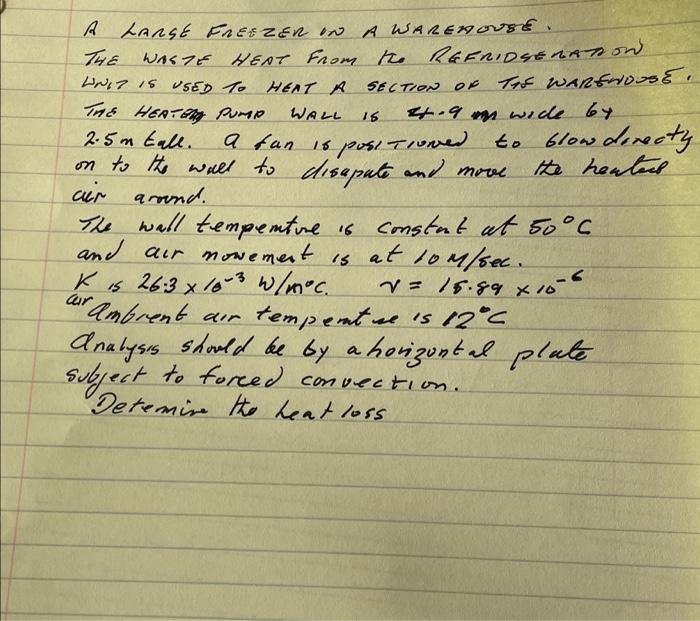 A LARGE FREEZER IN A WAREHOUSE.
THE WASTE HEAT FROM the REFRIDGERATION
UNIT IS USED TO HEAT A SECTION OF THE WAREHOUSE.
THE HEATER PUMP WALL IS 4.9 m wide by
2.5m tall. a fan is positioned to blow directly
on to the wall to disapate and move the heated
air around.
The wall temperature is constant at 50°C
and air movement is at 10 M/sec.
K is 26.3 x 10-3 W/m°C. v = 15.89 x 10-6
air
Ambient air temperature is 12°C
Analysis should be by a horizontal plate
subject to forced convection.
Determine the heat loss